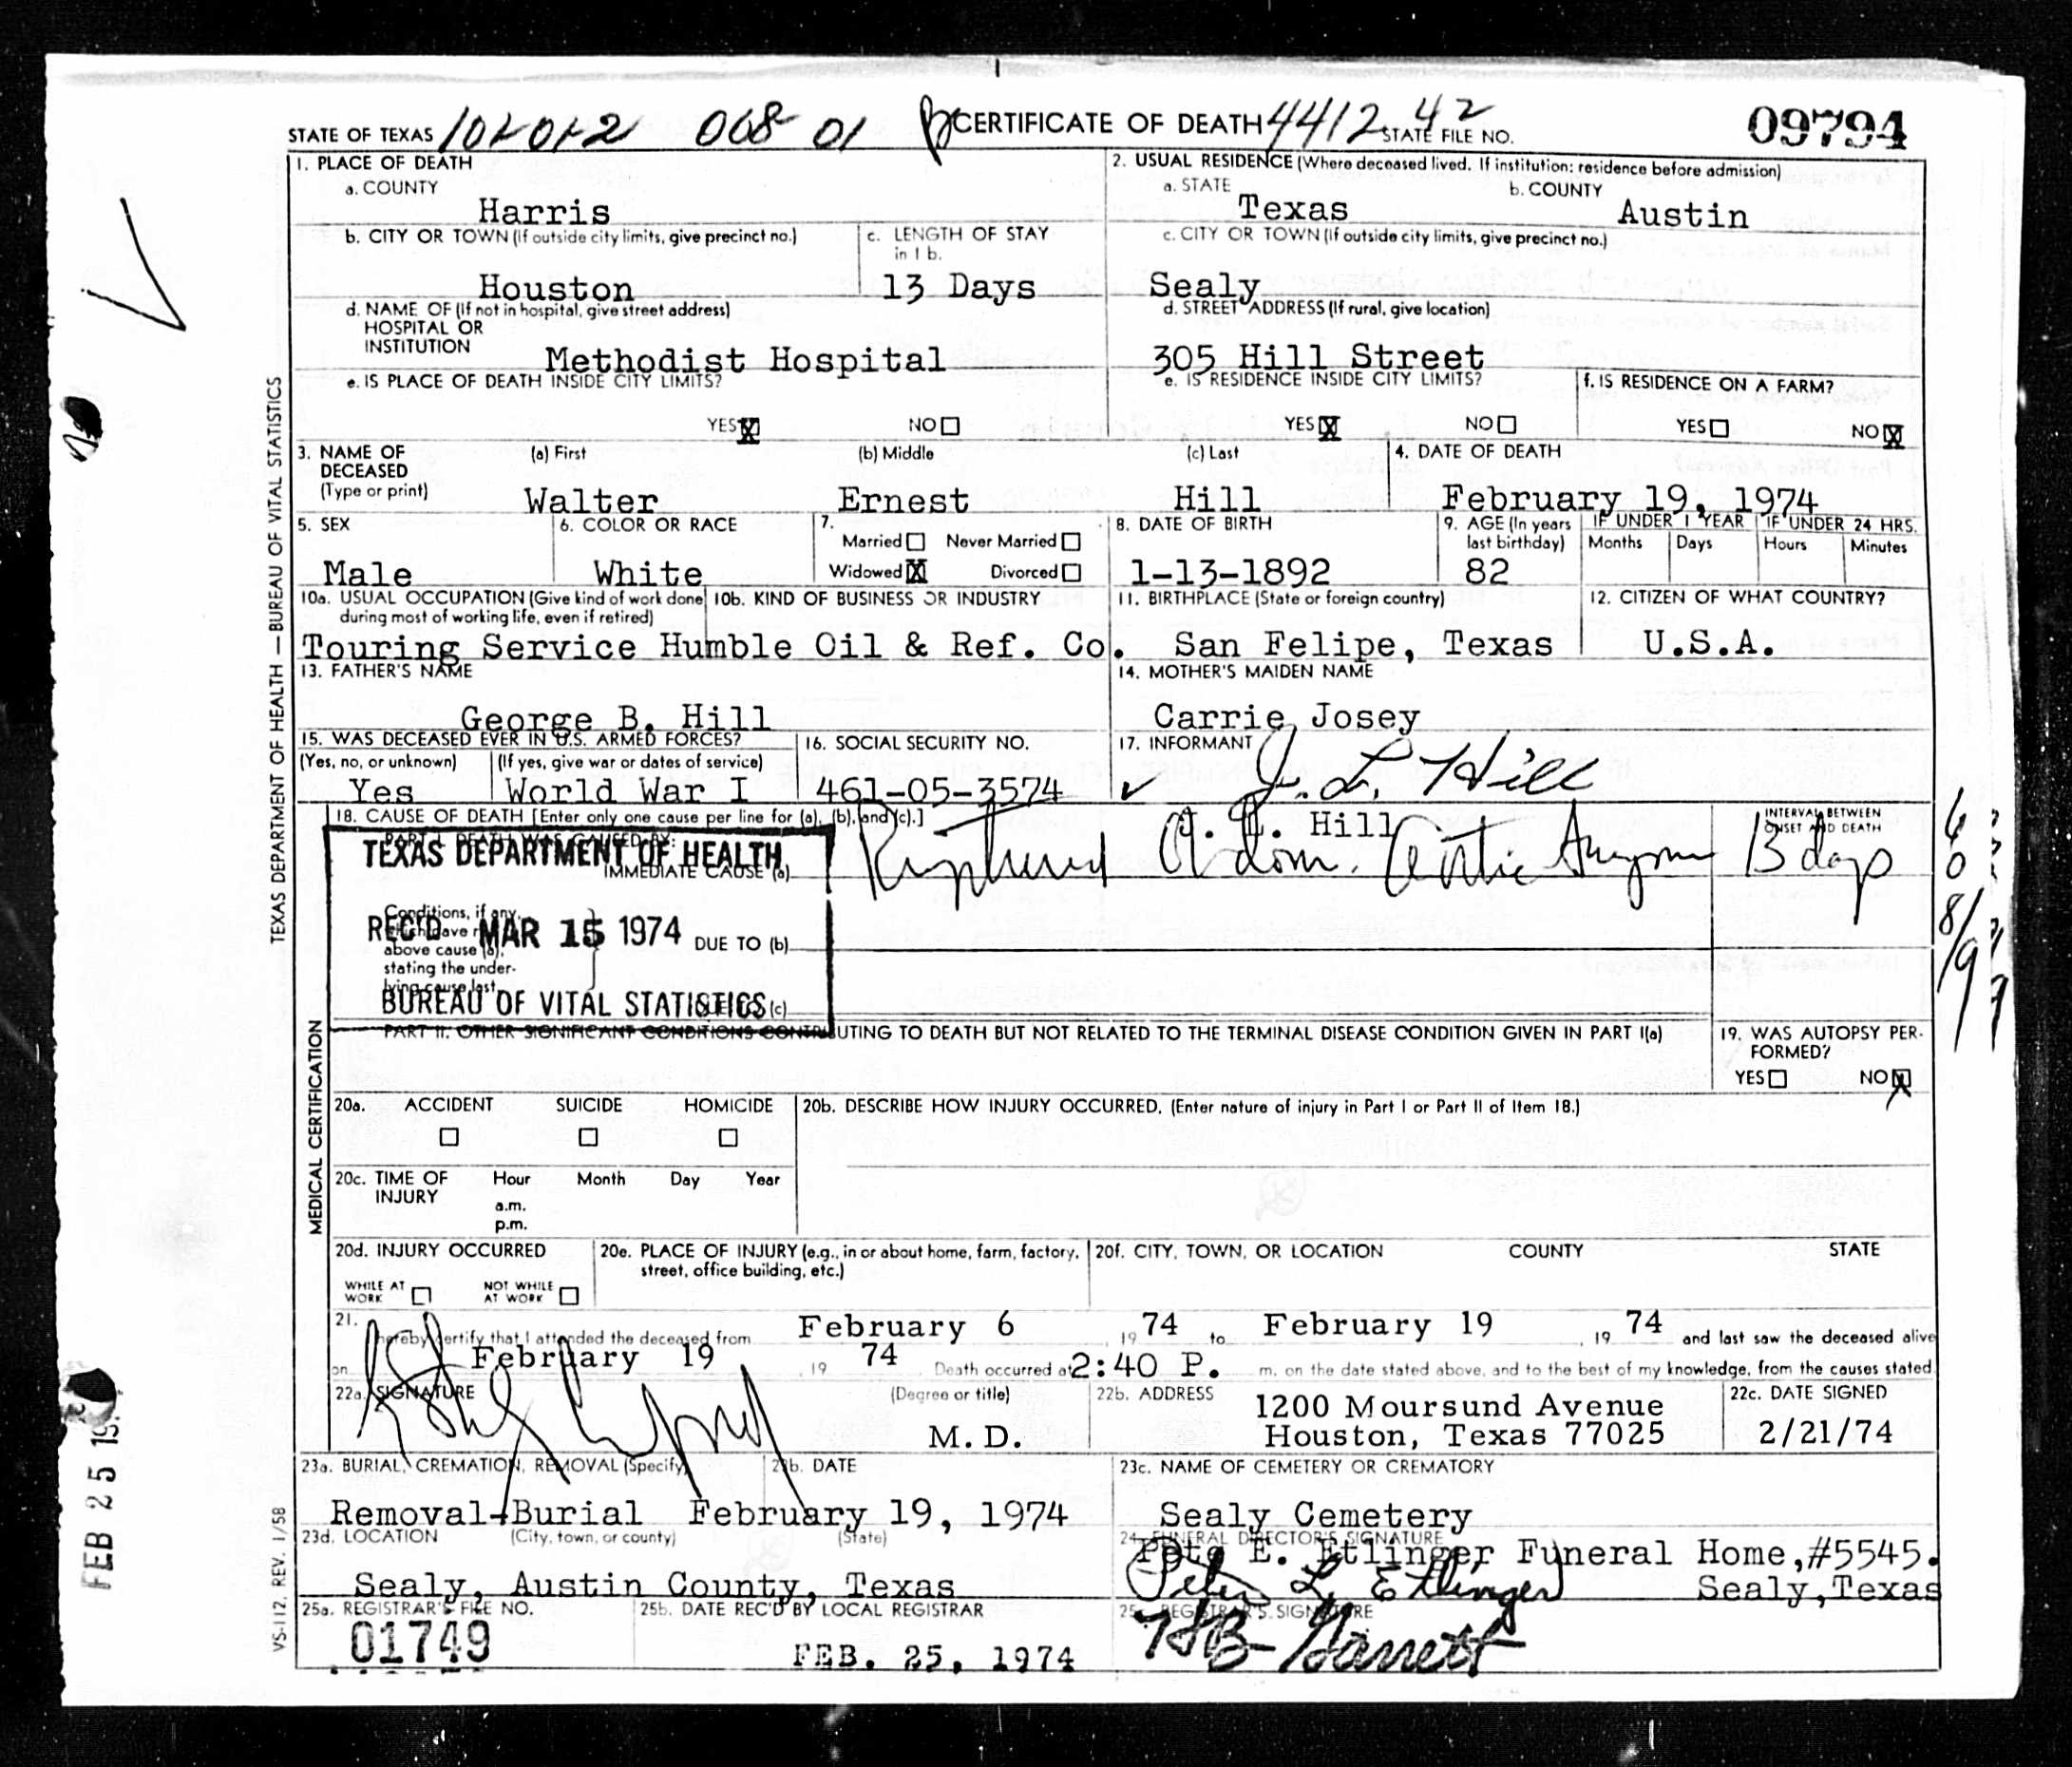 STATE OF TEXAS 101-012 008 01 CERTIFICATE OF DEATH 4412 42 STATE FILE NO. 09794
1. PLACE OF DEATH
a. COUNTY
Harris
2. USUAL RESIDENCE (Where deceased lived. If institution: residence before admission)
a. STATE b. COUNTY
Texas Austin
b. CITY OR TOWN (If outside city limits, give precinct no.) c. LENGTH OF STAY in 1 b.
Houston 13 Days
c. CITY OR TOWN (If outside city limits, give precinct no.)
Sealy
d. NAME OF (If not in hospital, give street address)
HOSPITAL OR
INSTITUTION
Methodist Hospital
d. STREET ADDRESS (If rural, give location)
305 Hill Street
e. IS PLACE OF DEATH INSIDE CITY LIMITS?
YES X NO
e. IS RESIDENCE INSIDE CITY LIMITS?
YES X NO
f. IS RESIDENCE ON A FARM?
YES NO X
3. NAME OF
DECEASED
(Type or print)
(a) First (b) Middle (c) Last
Walter Ernest Hill
4. DATE OF DEATH
February 19, 1974
5. SEX
Male
6. COLOR OR RACE
White
7.
Married Never Married
Widowed X Divorced
8. DATE OF BIRTH
1-13-1892
9. AGE (In years last birthday)
82
IF UNDER 1 YEAR IF UNDER 24 HRS.
Months Days Hours Minutes
10a. USUAL OCCUPATION (Give kind of work done
during most of working life, even if retired)
10b. KIND OF BUSINESS OR INDUSTRY
Touring Service Humble Oil & Ref. Co.
11. BIRTHPLACE (State or foreign country)
San Felipe, Texas
12. CITIZEN OF WHAT COUNTRY?
U.S.A.
13. FATHER'S NAME
George B. Hill
14. MOTHER'S MAIDEN NAME
Carrie Josey
15. WAS DECEASED EVER IN U.S. ARMED FORCES?
(Yes, no, or unknown) (If yes, give war or dates of service)
Yes World War I
16. SOCIAL SECURITY NO.
461-05-3574
17. INFORMANT
J. L. Hill
J. L. Hill
18. CAUSE OF DEATH [Enter only one cause per line for (a), (b), and (c).]
PART I. DEATH WAS CAUSED BY:
IMMEDIATE CAUSE (a)
Ruptured Abdom. Aortic
INTERVAL BETWEEN
ONSET AND DEATH
13 days
TEXAS DEPARTMENT OF HEALTH
REC'D MAR 15 1974
BUREAU OF VITAL STATISTICS
Conditions, if any,
which gave
above cause (a),
stating the under-
lying cause last.
DUE TO (b)
(c)
PART II. OTHER SIGNIFICANT CONDITIONS CONTRIBUTING TO DEATH BUT NOT RELATED TO THE TERMINAL DISEASE CONDITION GIVEN IN PART I(a)
19. WAS AUTOPSY PER-
FORMED?
YES NO X
20a. ACCIDENT SUICIDE HOMICIDE
20b. DESCRIBE HOW INJURY OCCURRED. (Enter nature of injury in Part I or Part II of Item 18.)
20c. TIME OF
INJURY
Hour Month Day Year
a.m.
p.m.
20d. INJURY OCCURRED
WHILE AT
WORK
NOT WHILE
AT WORK
20e. PLACE OF INJURY (e.g., in or about home, farm, factory,
street, office building, etc.)
20f. CITY, TOWN, OR LOCATION COUNTY STATE
21. hereby certify that I attended the deceased from February 6 , 19 74 to February 19 , 19 74 and last saw the deceased alive
on February 19 , 19 74 Death occurred at 2:40 P. m. on the date stated above, and to the best of my knowledge, from the causes stated.
22a. SIGNATURE (Degree or title)
M.D.
22b. ADDRESS
1200 Moursund Avenue
Houston, Texas 77025
22c. DATE SIGNED
2/21/74
23a. BURIAL, CREMATION, REMOVAL (Specify) 23b. DATE
Removal-Burial February 19, 1974
23c. NAME OF CEMETERY OR CREMATORY
Sealy Cemetery
23d. LOCATION (City, town, or county) (State)
Sealy, Austin County, Texas
24. FUNERAL DIRECTOR'S SIGNATURE
Pete E. Etlinger Funeral Home,#5545.
Peter L. Etlinger Sealy,Texas
25a. REGISTRAR'S FILE NO.
01749
25b. DATE REC'D BY LOCAL REGISTRAR
FEB. 25, 1974
25c. REGISTRAR'S SIGNATURE
Garrett
TEXAS DEPARTMENT OF HEALTH — BUREAU OF VITAL STATISTICS
MEDICAL CERTIFICATION
VS-112, REV. 1/58
FEB 25 19